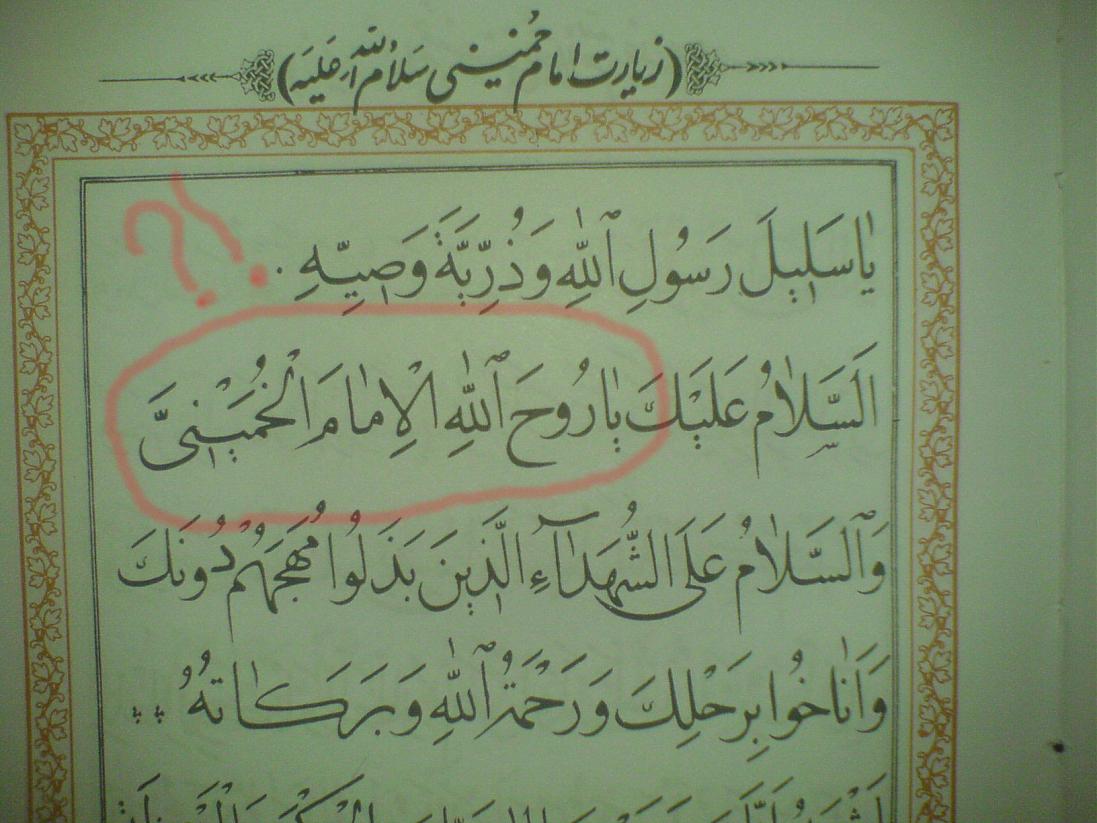 (زیارت امام خمینی سَلامُ اللهِ عَلَیه)
یٰاسَلیٖلَ رَسُولِ ٱللّٰهِ وَذُرِّیَّةَ وَصِیِّهِ ٠
اَلسَّلاٰمُ عَلَیْكَ یٰارُوحَ ٱللّٰهِ الْاِمٰامَ الْخُمَیْنِیَّ
وَٱلسَّلاٰمُ عَلَی الشُّهَدٰآءِ الَّذینَ بَذَلُوا مُهَجَهُمْ دُونَكَ
وَاَنٰاخُوا بِرَحْلِكَ وَرَحْمَةُ ٱللّٰهِ وَبَرَكٰاتُهُ
؟!